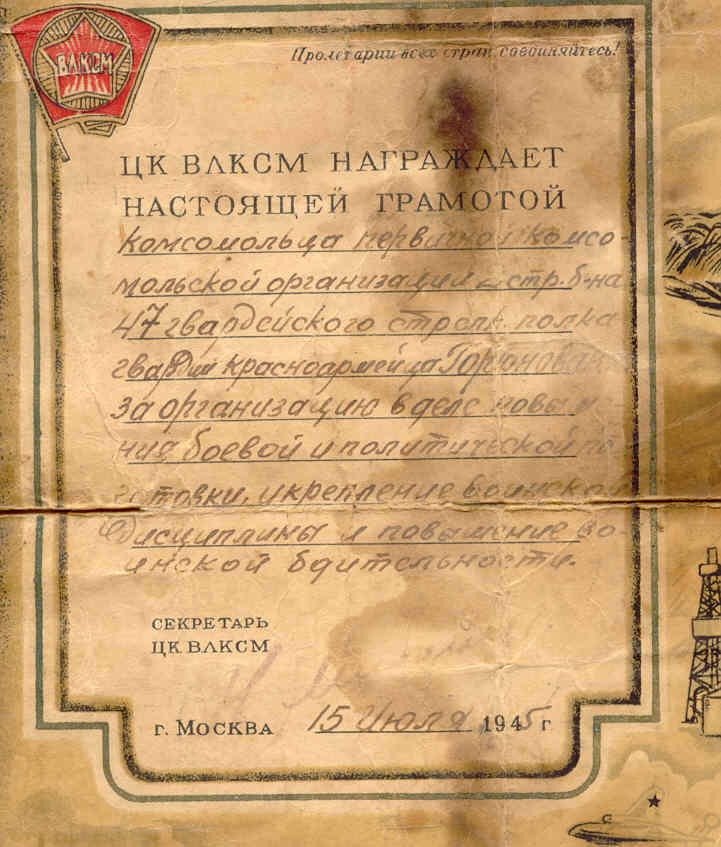 ВЛКСМ
Пролетарии всех стран, соединяйтесь!
ЦК ВЛКСМ НАГРАЖДАЕТ
НАСТОЯЩЕЙ ГРАМОТОЙ
комсомольца первичной комсо-
мольской организации стр. б-на
47 гвардейского стрелк. полка
гвардии красноармейца
за организацию в деле повы
ния боевой и политической по
готовки, укрепление воинской
дисциплины и повышение во-
инской бдительности.
СЕКРЕТАРЬ
ЦК ВЛКСМ
г. МОСКВА 15 Июля 1945 г